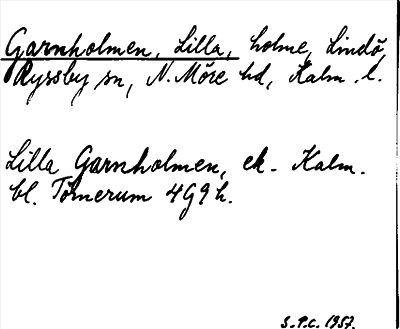 Garnholmen, Lilla, holme, Lindö,
Ryssby sn, N. Möre hd, Kalm. l.
Lilla Garnholmen, ek. Kalm.
bl. Törnerum 4G9h.
S.P.C. 1957.